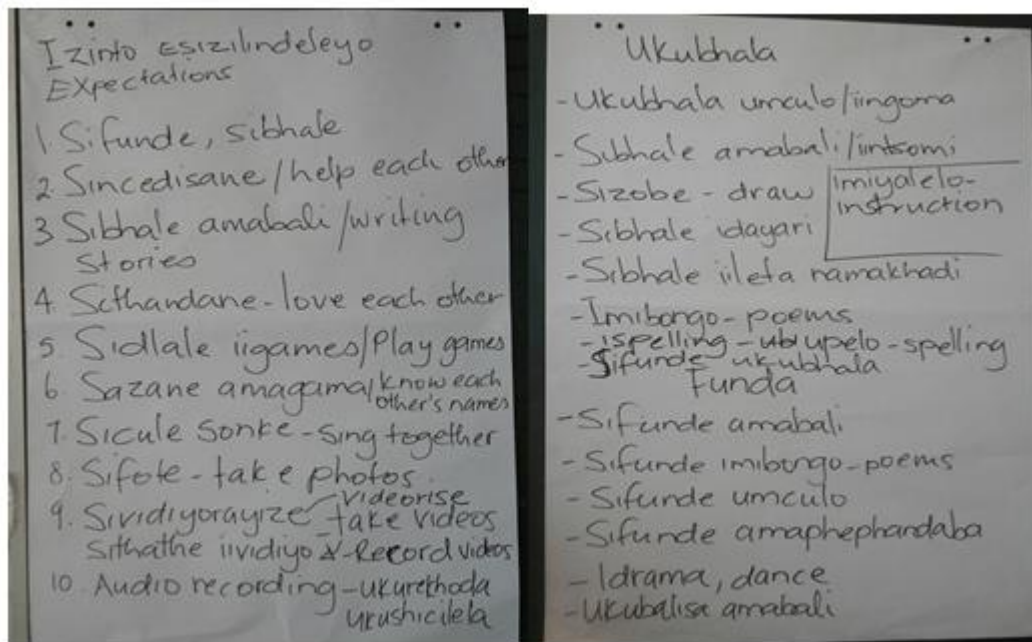 Izinto Esizilindeleyo
Expectations
1. Sifunde, sibhale
2. Sincedisane/help each other
3 Sibhale amabali/writing
stories
4. Sithandane - love each other
5. Sidlale iigames/Play games
6. Sazane amagama/know each
other's names
7. Sicule sonke - Sing together
8. Sifote - take photos
videorise
9. Sividiyorayize - take videos
Sithathe iividiyo - Record videos
10. Audio recording - ukurekhoda
ukushicilela
Ukubhala
- Ukubhala umculo/iingoma
- Sibhale amabali/iintsomi
- Sizobe - draw
imiyalelo-
instruction
- Sibhale idayari
- Sibhale iileta namakhadi
- Imibongo - poems
- ispelling - ubupelo - spelling
- Sifunde ukubhala
Funda
- Sifunde amabali
- Sifunde imibongo - poems
- Sifunde umculo
- Sifunde amaphephandaba
- Idrama, dance
- Ukubalisa amabali